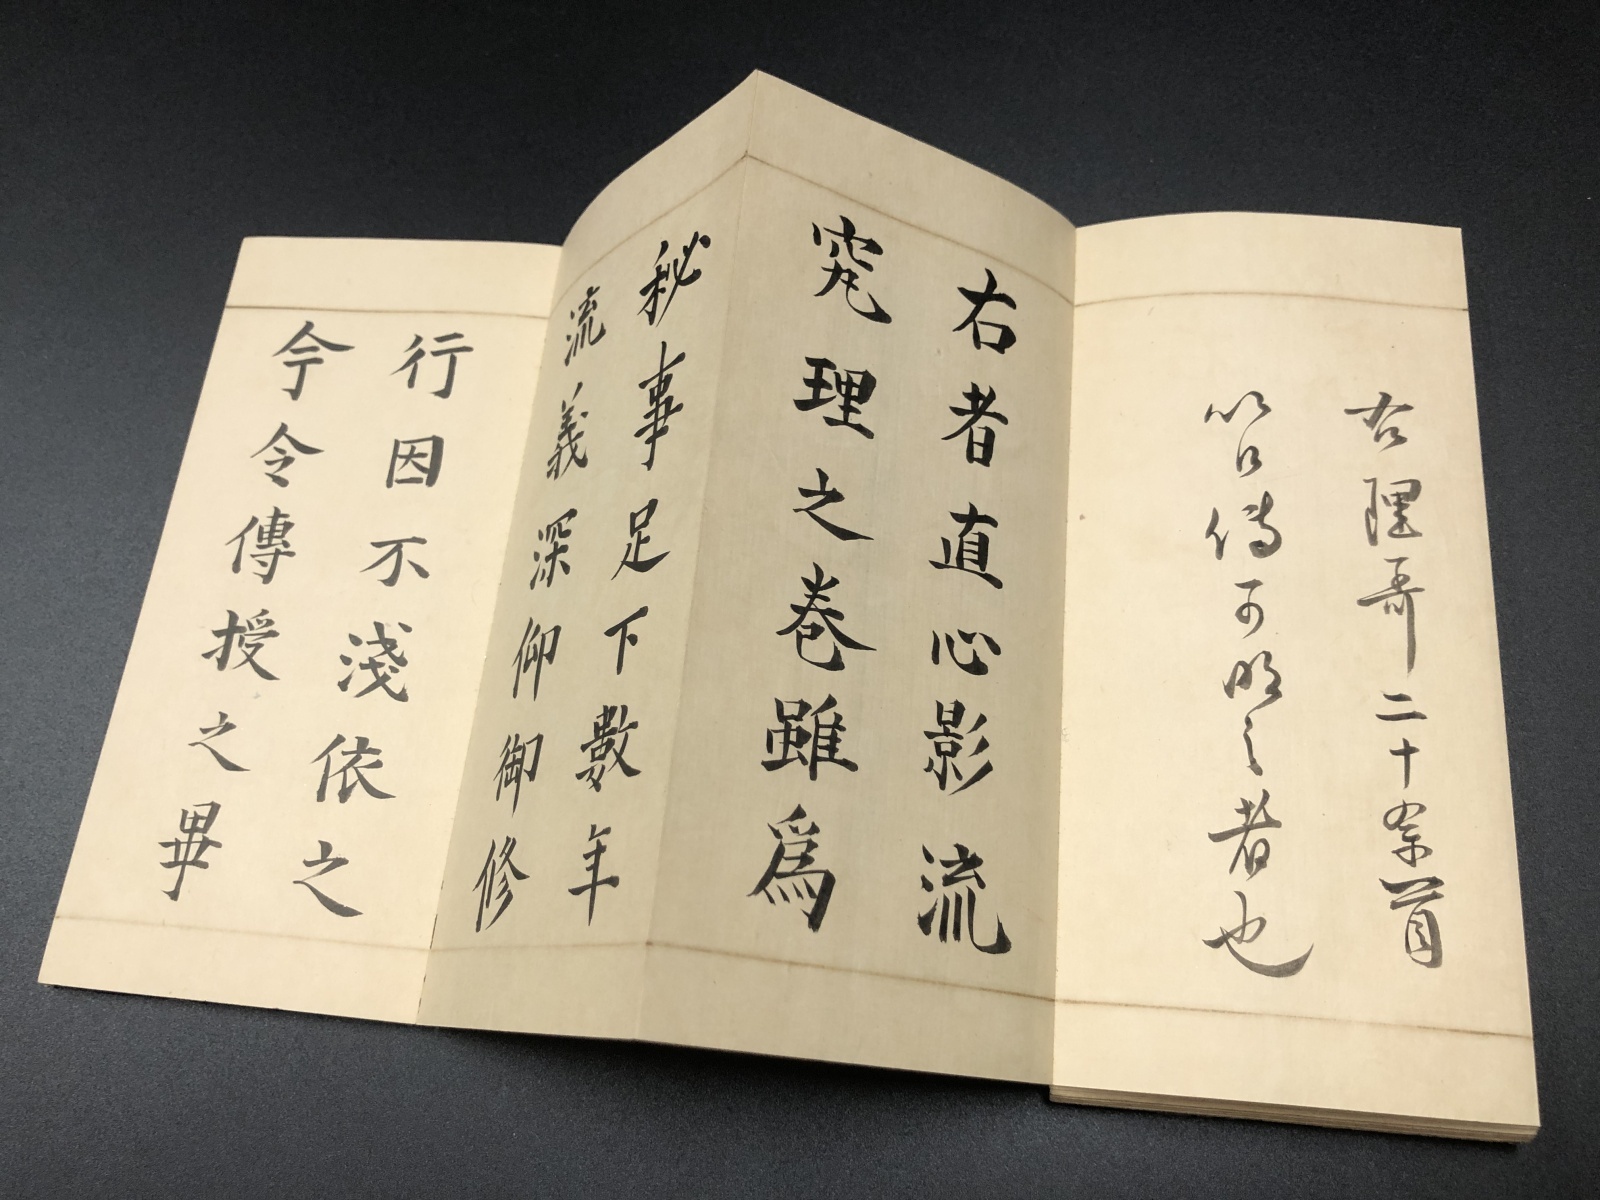 右理哥二十余首
以口傳可明之者也
右者直心影流
究理之巻雖爲
秘事足下數年
流義深仰御修
行因不淺依之
今令傳授之畢